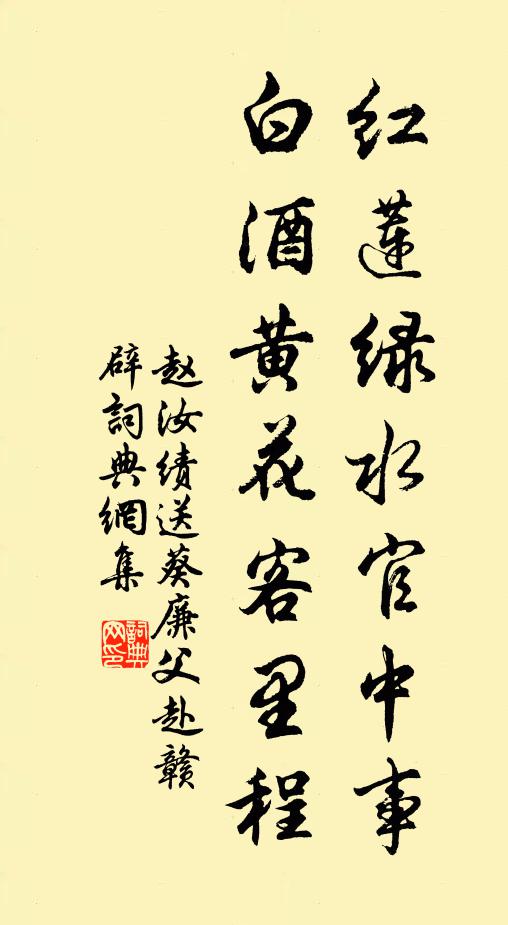 红莲绿水官中事
白酒黄花客里程
赵汝绩送葵廉父赴赣
辟詞典網集
詞典网印